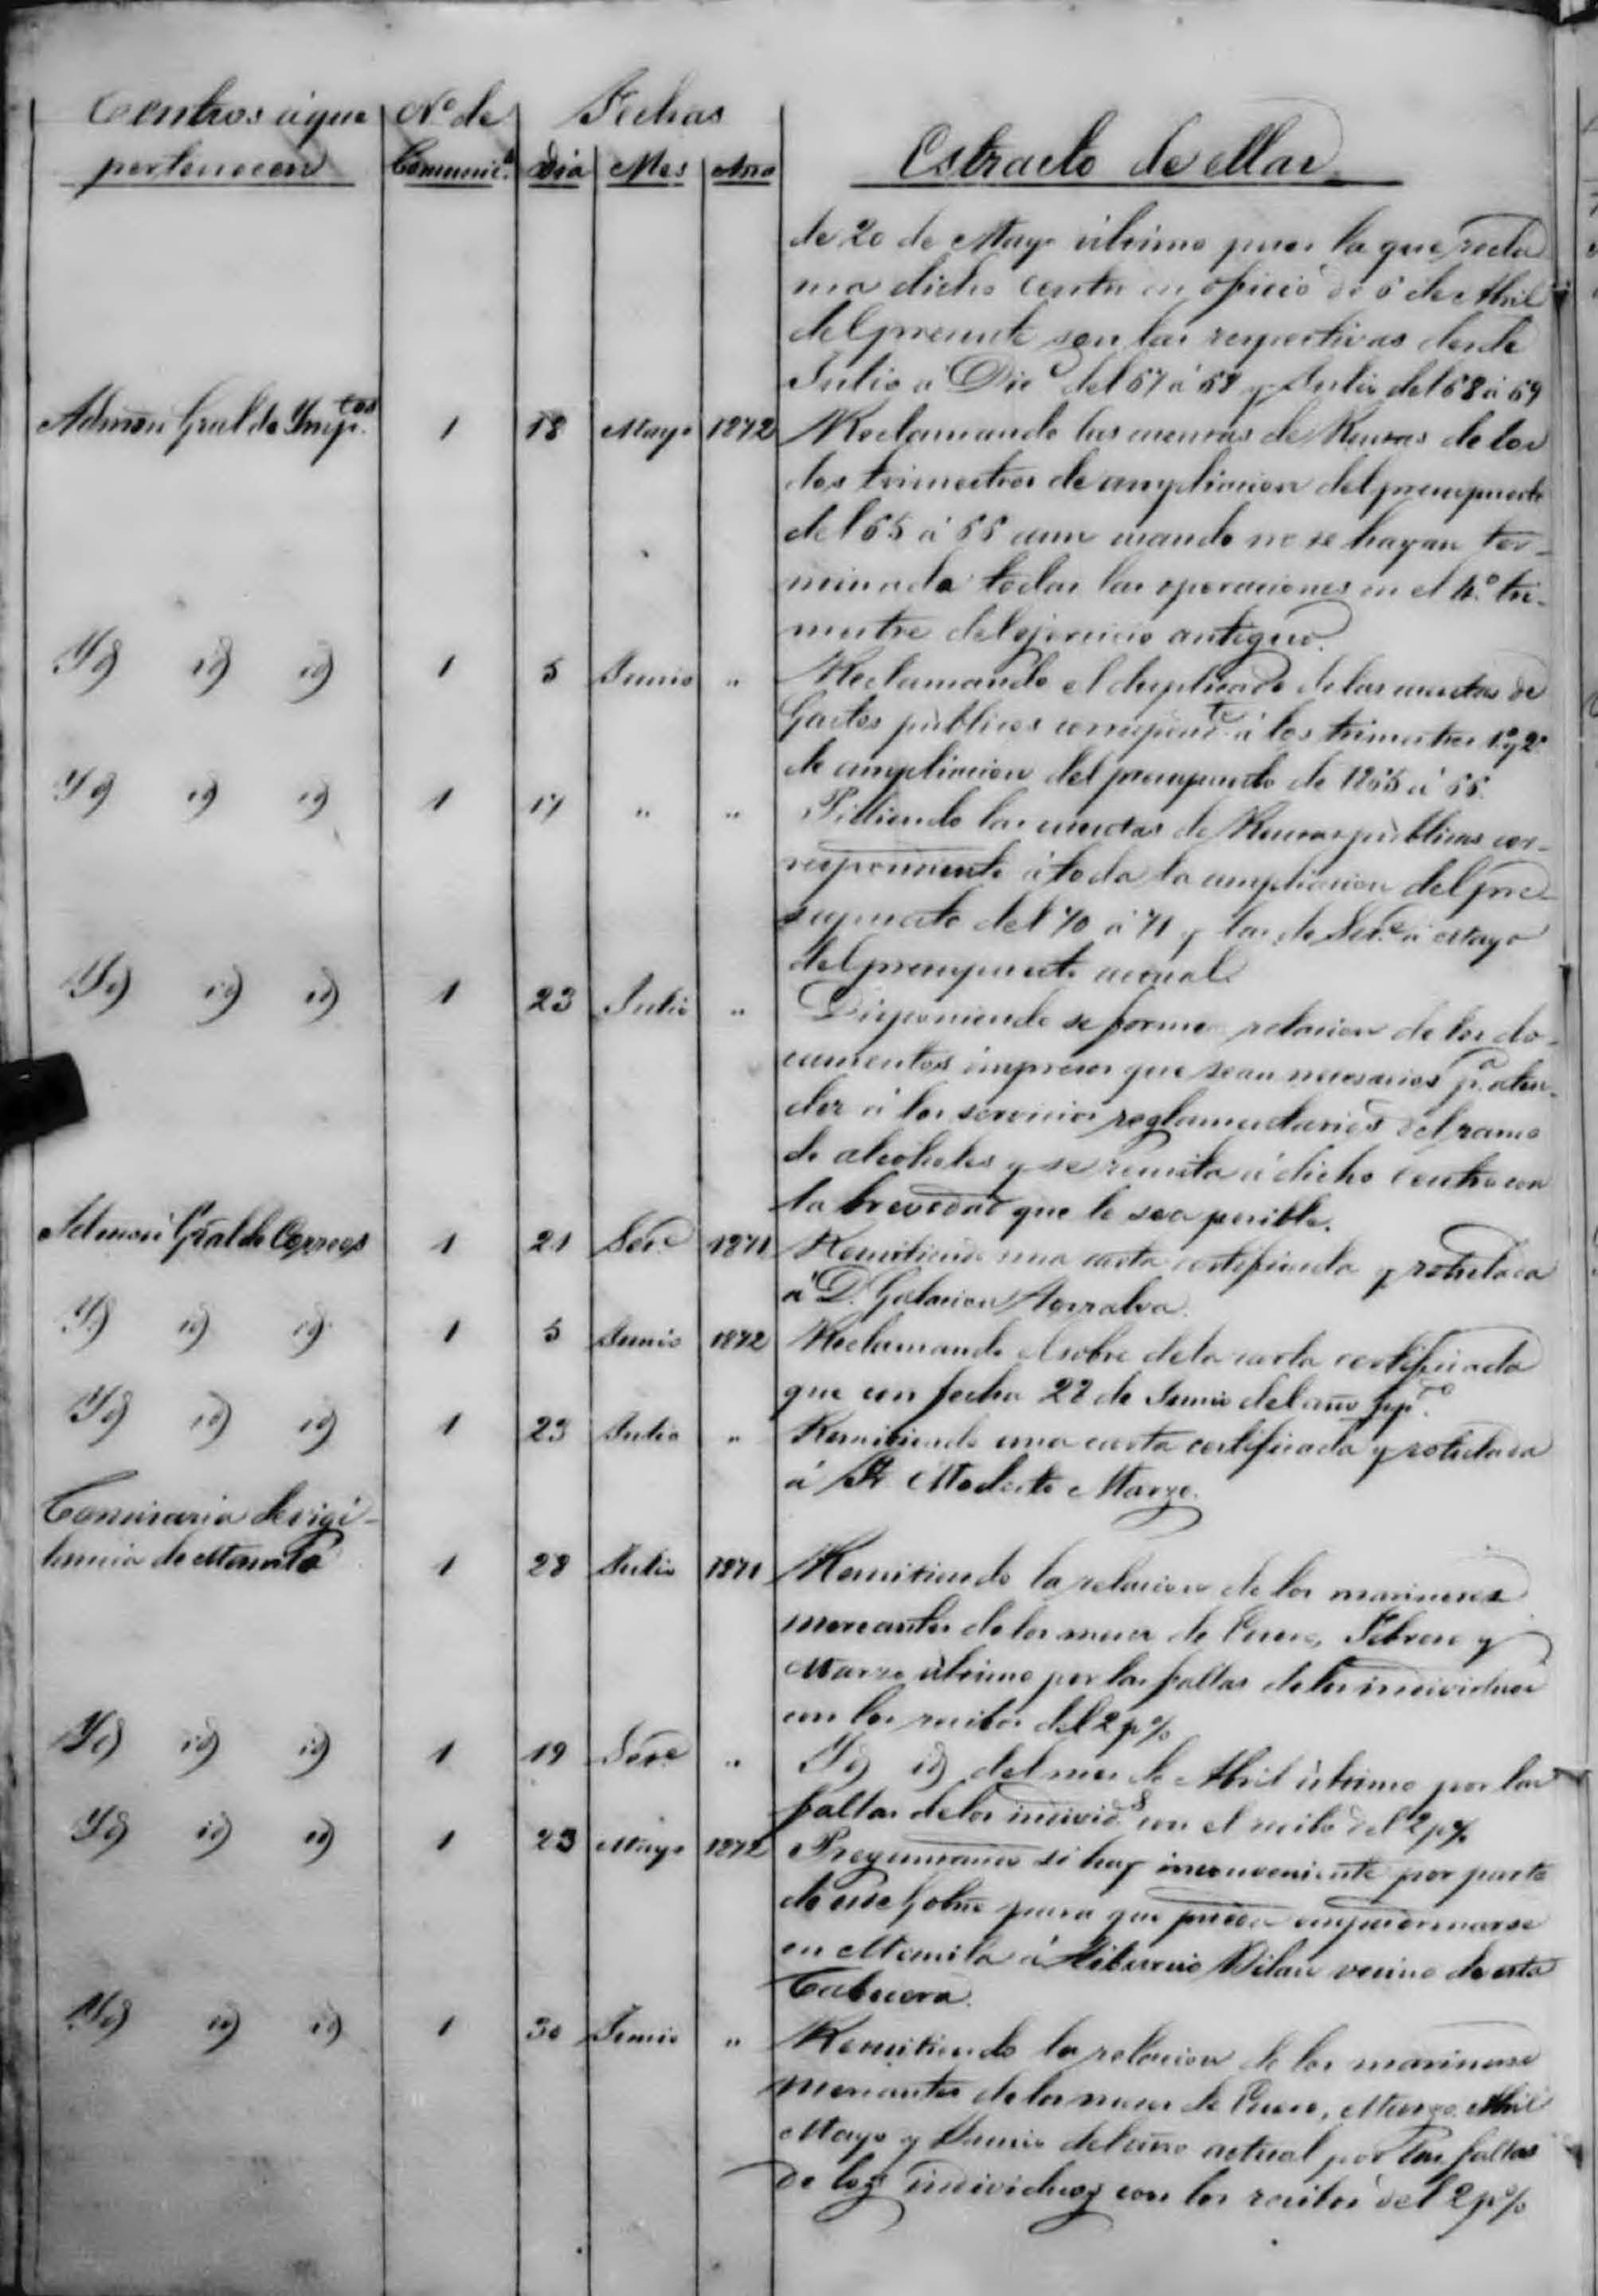 Centros á que pertenecen | Nº de Comunic.ⁿ | Fechas Dia | Mes | Año | Estracto de ellas
de 20 de Mayo último pues la que recla
ma dicho Centro en oficio de 6 de Abril
del presente son las respectivas desde
Julio á Dic.e del 67 á 68 y Julio del 68 á 69
Admon Gral de Imp.tos 1 18 Mayo 1872 Reclamando las cuentas de Rentas de los
dos trimestres de ampliacion del presupuesto
del 65 á 66 aun cuando no se hayan ter-
minado todas las operaciones en el 4.º tri-
mestre del ejercicio antiguo.
Yd id id 1 5 Junio " Reclamando el duplicado de las cuentas de
Gastos públicos correspond.te á los trimestres 1.º y 2.º
de ampliacion del presupuesto de 1865 á 66.
Yd id id 1 17 " " Pidiendo las cuentas de Rentas públicas cor-
respondiente á toda la ampliacion del pre-
supuesto del 70 á 71 y las de Set.e á Mayo
del presupuesto actual.
Yd id id 1 23 Julio " Disponiendo se forme relacion de los do-
cumentos impresos que sean necesarios p.a aten-
der á los servicios reglamentarios del ramo
de alcoholes y se remita á dicho Centro con
la brevedad que le sea posible.
Admon Gral de Correos 1 21 Set.e 1871 Remitiendo una carta certificada y rotulada
á D. Galacion
Yd id id 1 5 Junio 1872 Reclamando el sobre de la carta certificada
que con fecha 27 de Junio del año pp.do
Yd id id 1 23 Julio " Remitiendo una carta certificada y rotulada
á Fr. Modesto Marzo.
Comisaria de vigi-
lancia de Manila 1 28 Julio 1871 Remitiendo la relacion de los marineros
mercantes de los meses de Enero, Febrero y
Marzo último por las faltas de los individuos
con los recibos del 2 p%
Yd id id 1 19 Set.e " Yd id del mes de Abril último por las
faltas de los individ.s con el recibo del 2 p%
Yd id id 1 23 Mayo 1872 Preguntando si hay inconveniente por parte
de este Gobno para que pueda empadronarse
en Manila á Tiburcio vecino de esta
Cabecera.
Yd id id 1 30 Junio " Remitiendo la relacion de los marineros
mercantes de los meses de Enero, Marzo, Abril
Mayo y Junio del año actual por las faltas
de los individuos con los recibos del 2 p%